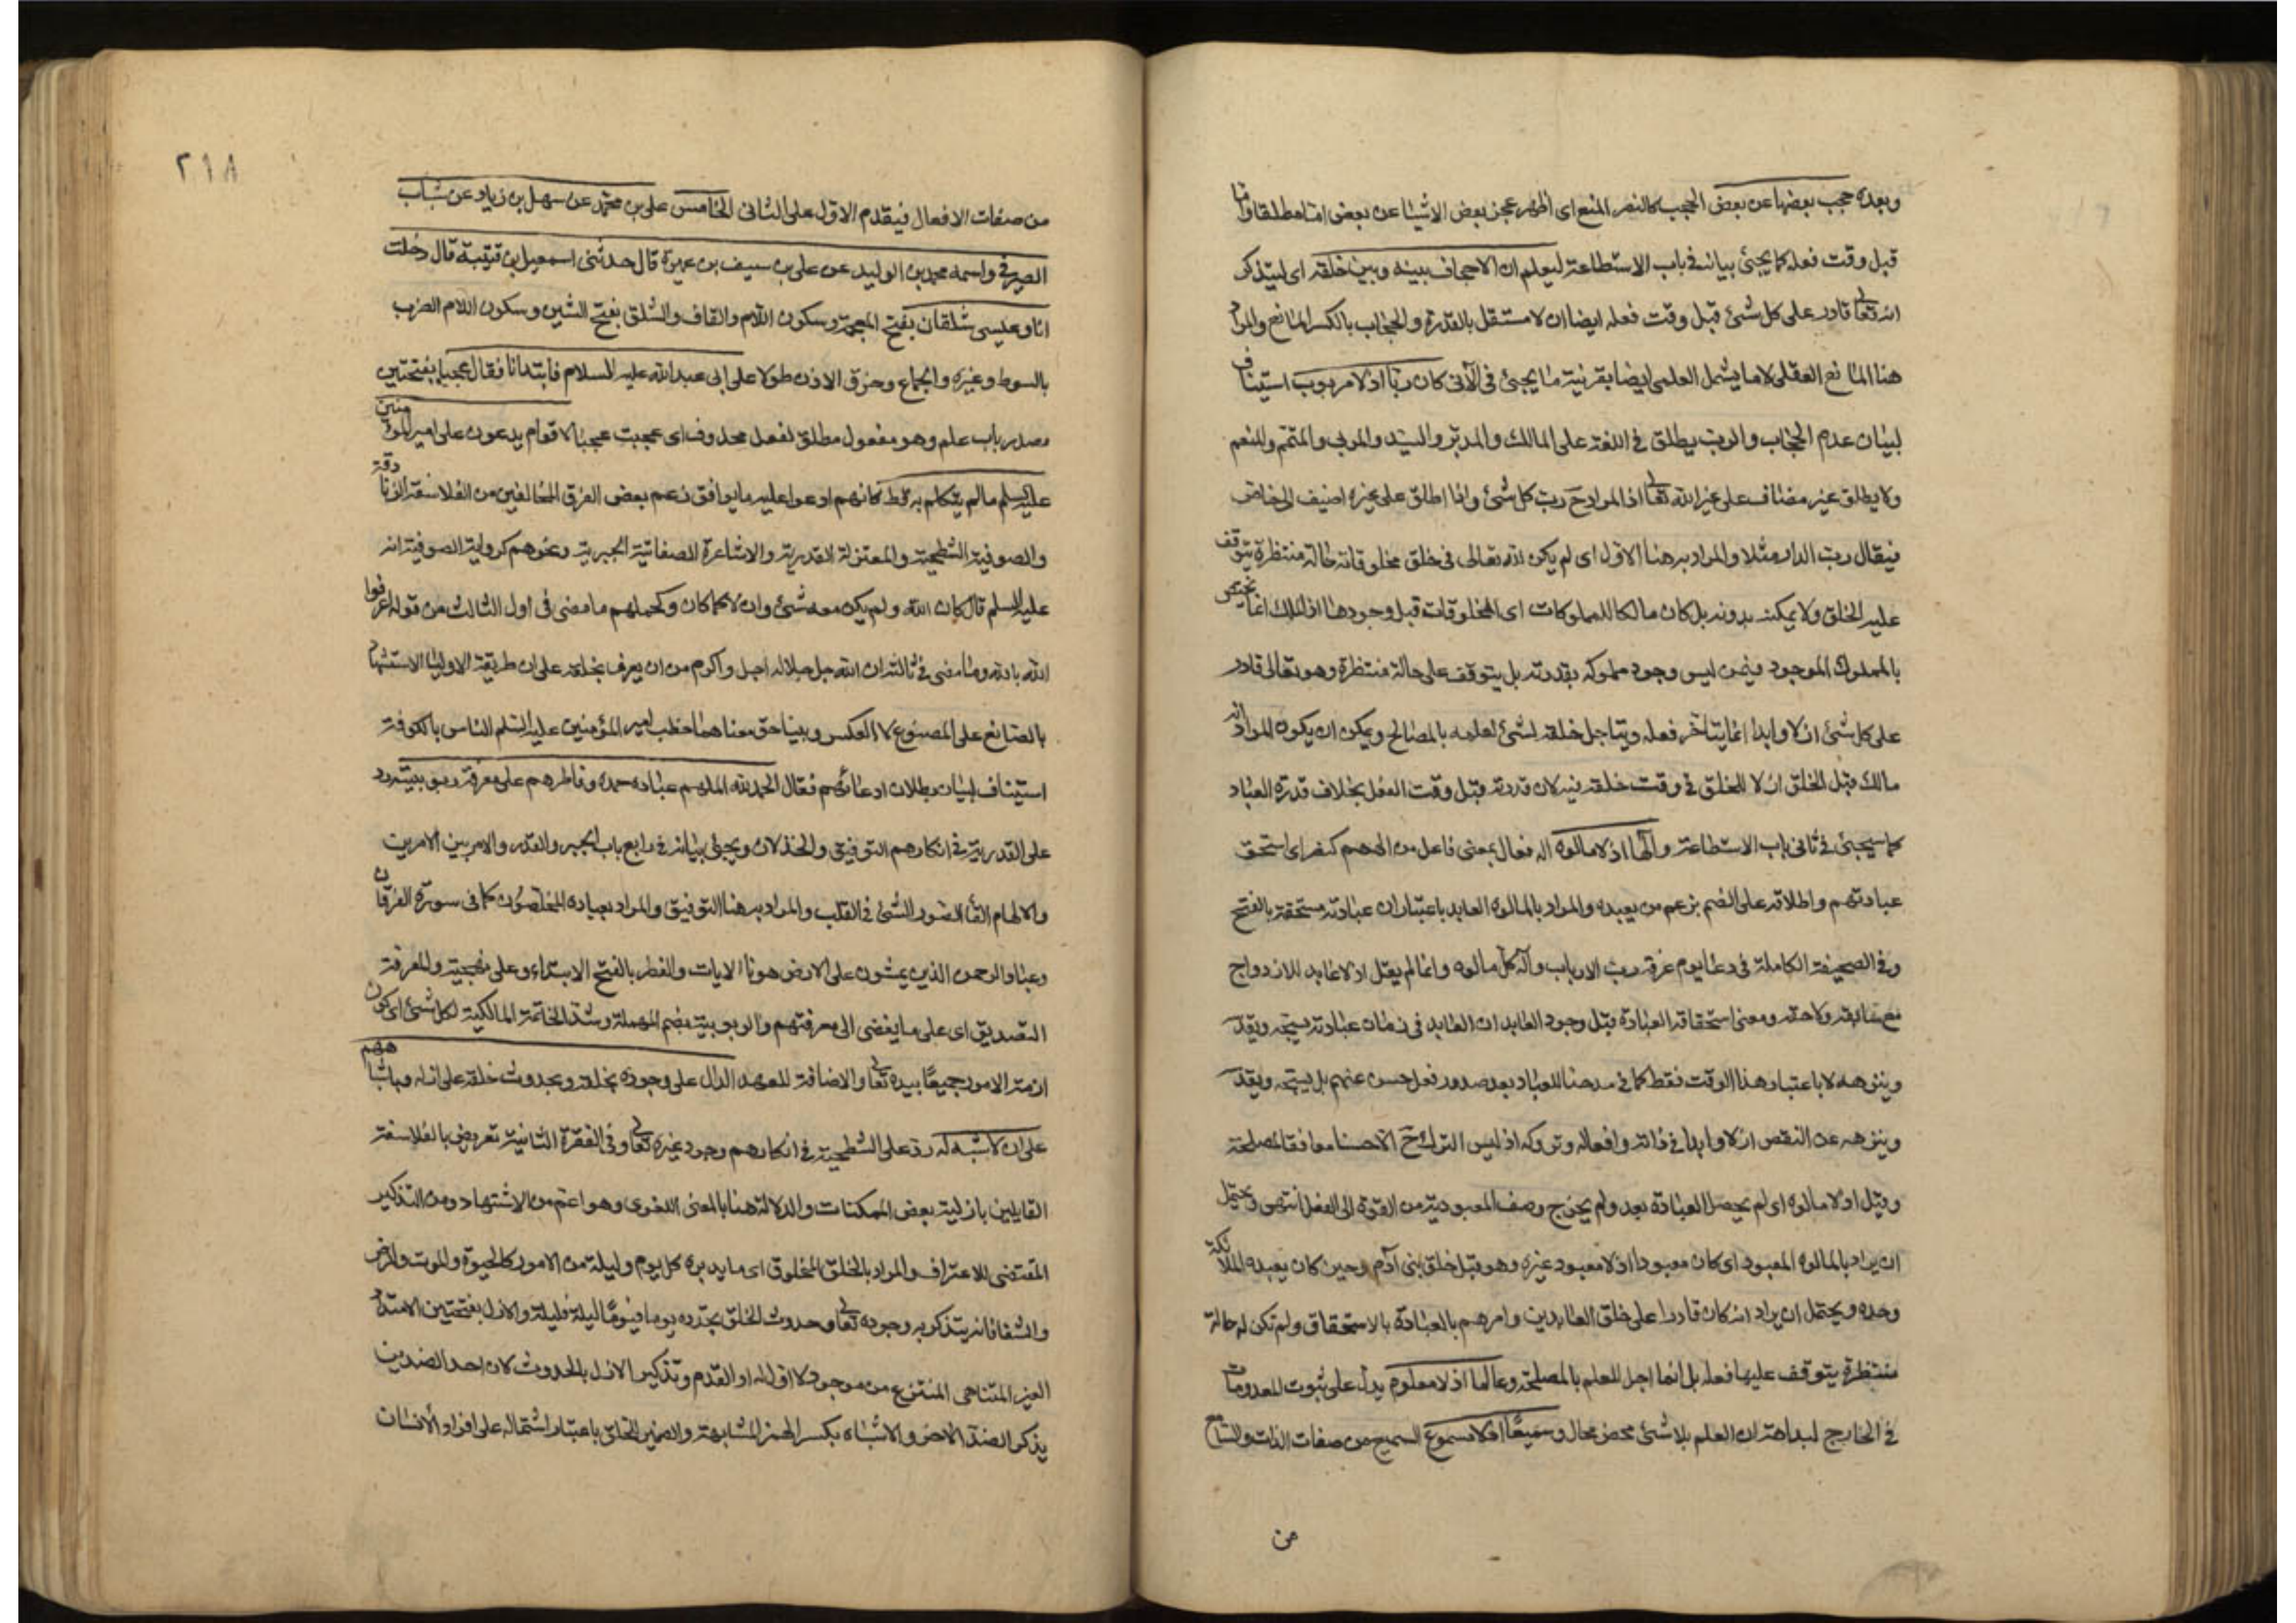 وبعده حجب بعضها عن بعض الحجب كالنصر المنع اى اظهر عجز بعض الاشيا عن بعض اما مطلقا واما
قبل وقت فعله كما يجئ بيانه فى باب الاستطاعة ليعلم ان لا حجاب بينه وبين خلقه اى ليتذكر
انه تعالى قادر على كل شئ قبل وقت فعله ايضا ان لا مستقل بالقدرة والحجاب بالكسر المانع والمراد
هنا المانع العقلى لا ما يشمل العلمى ايضا بقرنية ما يجئ فى الآتى كان ربا اذ لا مربوب استيناف
لبيان عدم الحجاب والرب يطلق فى اللغة على المالك والمدبر والسيد والمربى والمتمم والمنعم
ولا يطلق غير مضاف على غير الله تعالى اذ المراد ح رب كل شئ واذا اطلق على غيره اضيف الى خاص
فيقال رب الدار مثلا والمراد به هنا الاول اى لم يكن لله تعالى فى خلق مخلوقاته حالة منتظرة يتوقف
عليه الخلق ولا يمكنه بدونه بل كان مالكا للمملوكات اى المخلوقات قبل وجودها اذ الملك انما يختص
بالمملوك الموجود فيمن ليس وجود مملوكه بقدرته بل يتوقف على حالة منتظرة وهو تعالى قادر
على كل شئ ازلا وابدا انما يتاخر فعله ويتاجل خلقه لشئ لعلمه بالمصالح ويمكن ان يكون المراد انه
مالك قبل الخلق ازلا للخلق فى وقت خلقه فيه لان قدرته قبل وقت الفعل بخلاف قدرة العباد
كما سيجئ فى ثانى باب الاستطاعة والها اذ لا مالوه اله فعال بمعنى فاعل من الههم كنصر اى استحق
عبادتهم واطلاقه على الصنم بزعم من يعبده والمراد بالمالوه العابد باعتبار ان عبادته مستحقة بالفتح
وفى الصحيفة الكاملة فى دعا يوم عرفة رب الارباب واله كل مالوه وانما لم يقل اذ لا عابد للازدواج
مع سابقه ولاحقه ومعنى استحقاقه العبادة قبل وجود العابد ان العابد فى زمان عبادته يسبحه ويقدسه
وينزهه لا باعتبار هذا الوقت فقط كما فى مدحنا للعباد بعد صدور فعل حسن عنهم بل يسبحه ويقدسه
وينزهه عن النقص ازلا وابدا فى ذاته وافعاله وتروكه اذ ليس الترك ح الا حسنا موافقا لمصلحة
وقيل اذ لا مالوه اى لم يحصل العبادة بعد ولم يخرج وصف المعبودية من القوة الى الفعل انتهى ويحتمل
ان يراد بالمالوه المعبود اى كان معبودا اذ لا معبود غيره وهو قبل خلق بنى آدم وحين كان يعبده الملائكة
وحده ويحتمل ان يراد انه كان قادرا على خلق العابدين وامرهم بالعبادة بالاستحقاق ولم تكن له حالة
منتظرة يتوقف عليها فعله بل انما اجل للعلم بالمصلحة وعالما اذ لا معلوم يدل على ثبوت المعدومات
فى الخارج لبداهة ان العلم بلا شئ محض محال وسميعا اذ لا مسموع السميع من صفات الذات والسامع
من
٢١٨
من صفات الافعال فيقدم الاول على الثانى الخامس على بن محمد عن سهل بن زياد عن شباب
الصيرفى واسمه محمد بن الوليد عن على بن سيف بن عميرة قال حدثنى اسمعيل بن قتيبة قال دخلت
انا وعيسى شلقان بفتح المعجمة وسكون اللام والقاف والشلق بفتح الشين وسكون اللام الضرب
بالسوط وغيره والجماع وخرق الاذن طولا على ابى عبد الله عليه السلام فابتدانا فقال عجبا بفتحتين
مصدر باب علم وهو مفعول مطلق لفعل محذوف اى عجبت عجبا لاقوام يدعون على امير المؤمنين
عليه السلم ما لم يتكلم به قط كانهم ادعوا عليه ما يوافق زعم بعض الفرق المخالفين من الفلاسفة الزنادقة
والصوفية الشطحية والمعتزلة القدرية والاشاعرة الصفاتية الجبرية ونحوهم كرواية الصوفية انه
عليه السلم قال كان الله ولم يكن معه شئ والان كما كان وكحملهم ما مضى فى اول الثالث من قوله اعرفوا
الله بالله وما مضى فى ثالثه ان الله جل جلاله اجل واكرم من ان يعرف بخلقه على ان طريقة الاوليا الاستشهاد
بالصانع على المصنوع لا العكس وبينا حق معناهما خطب امير المؤمنين عليه السلم الناس بالكوفة
استيناف لبيان بطلان ادعائهم فقال الحمد لله الملهم عباده حمده وفاطرهم على معرفة ربوبيته رد
على القدرية فى انكارهم التوفيق والخذلان ويجئ بيانه فى رابع باب الجبر والقدر والامر بين الامرين
والالهام القا الصور الشئ فى القلب والمراد به هنا التوفيق والمراد بعباده المخلصون كما فى سورة الفرقان
وعباد الرحمن الذين يمشون على الارض هونا الايات والفطر بالفتح الابتداء وعلى نهجية والمعرفة
التصديق اى على ما يفضى الى معرفتهم والربوبية بضم المهملة وشد الخاتمة المالكية لكل شئ اى كون
ازمة الامور جميعا بيده تعالى والاضافة للعهد الدال على وجوده بخلقه وبحدوث خلقه على ازله وباشباههم
على ان لا شبه له رد على الشطحية فى انكارهم وجود غيره تعالى وفى الفقرة الثانية تعريض بالفلاسفة
القايلين بازلية بعض الممكنات والدلالة هنا بالمعنى اللغوى وهو اعم من الاشتهاد ومن التذكير
المقتضى للاعتراف والمراد بالخلق المخلوق اى ما يدبره كل يوم وليلة من الامور كالحيوة والموت والمرض
والشفا فانه يتذكر به وجوده تعالى وحدوث الخلق تجدده يوما فيوما ليلة فليلة والازل بفتحتين الامتداد
الغير المتناهى المنتزع من موجود لا اول له او القدم وتذكير الازل بالحدوث لان احد الضدين
يذكر الضد الاخر والاشباه بكسر الهمز المشابهة والضمير للخلق باعتبار اشتماله على افراد الانسان